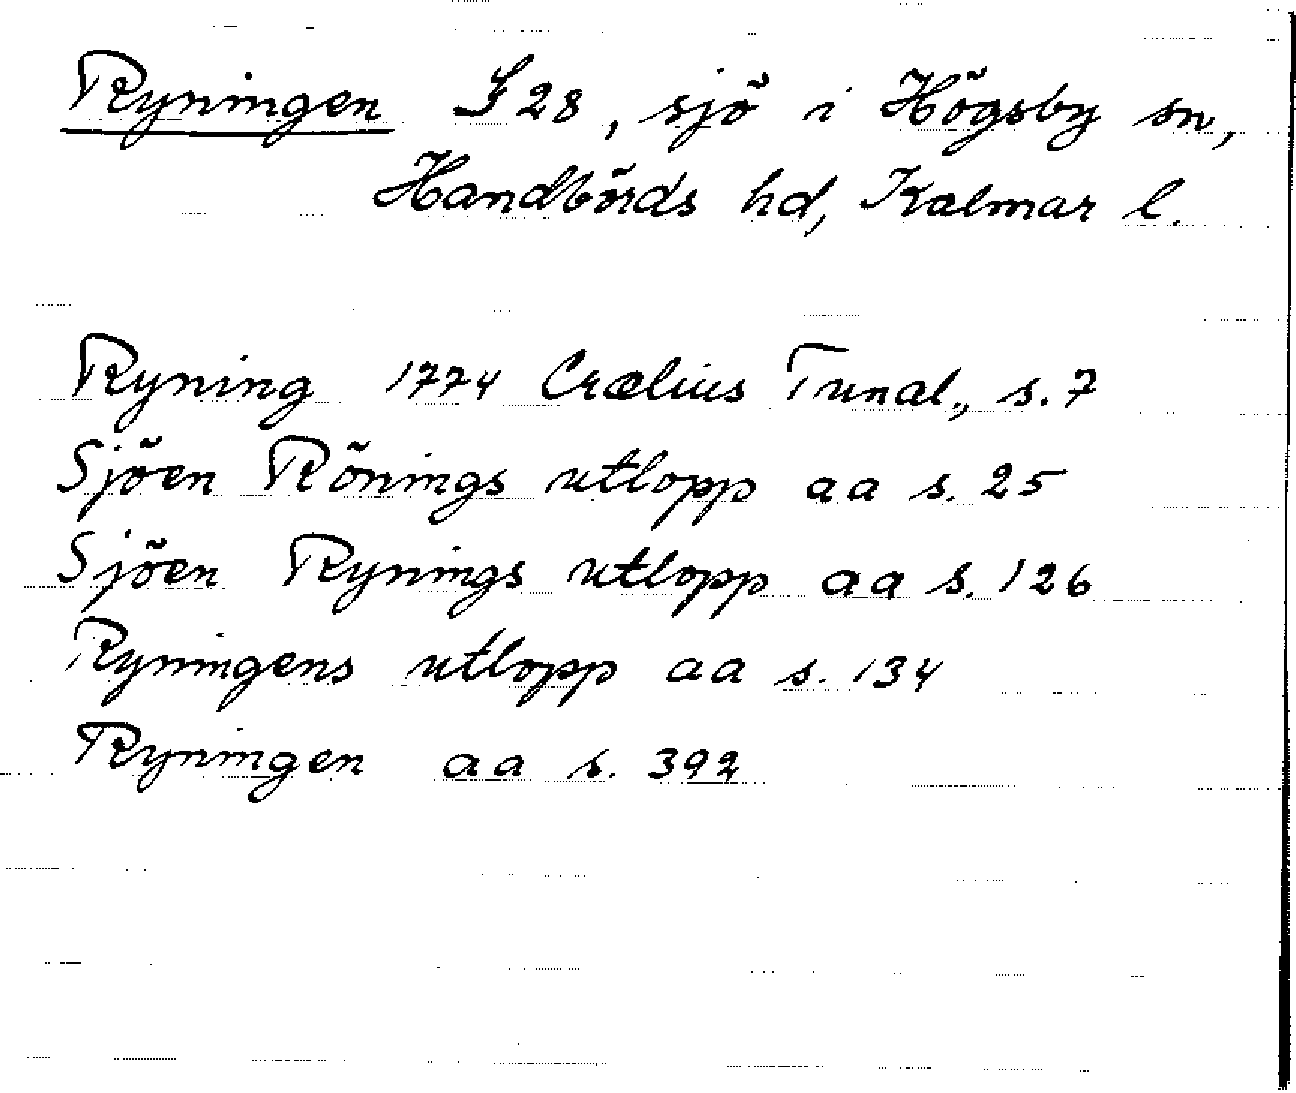 Ryningen S28, sjö i Högsby sn,
Handbörds hd, Kalmar l.
Ryning 1774 Crælius Tunal., s. 7
Sjöen Rönings utlopp aa s. 25
Sjöen Rynings utlopp aa s. 126
Ryningens utlopp aa s. 134
Ryningen aa s. 392